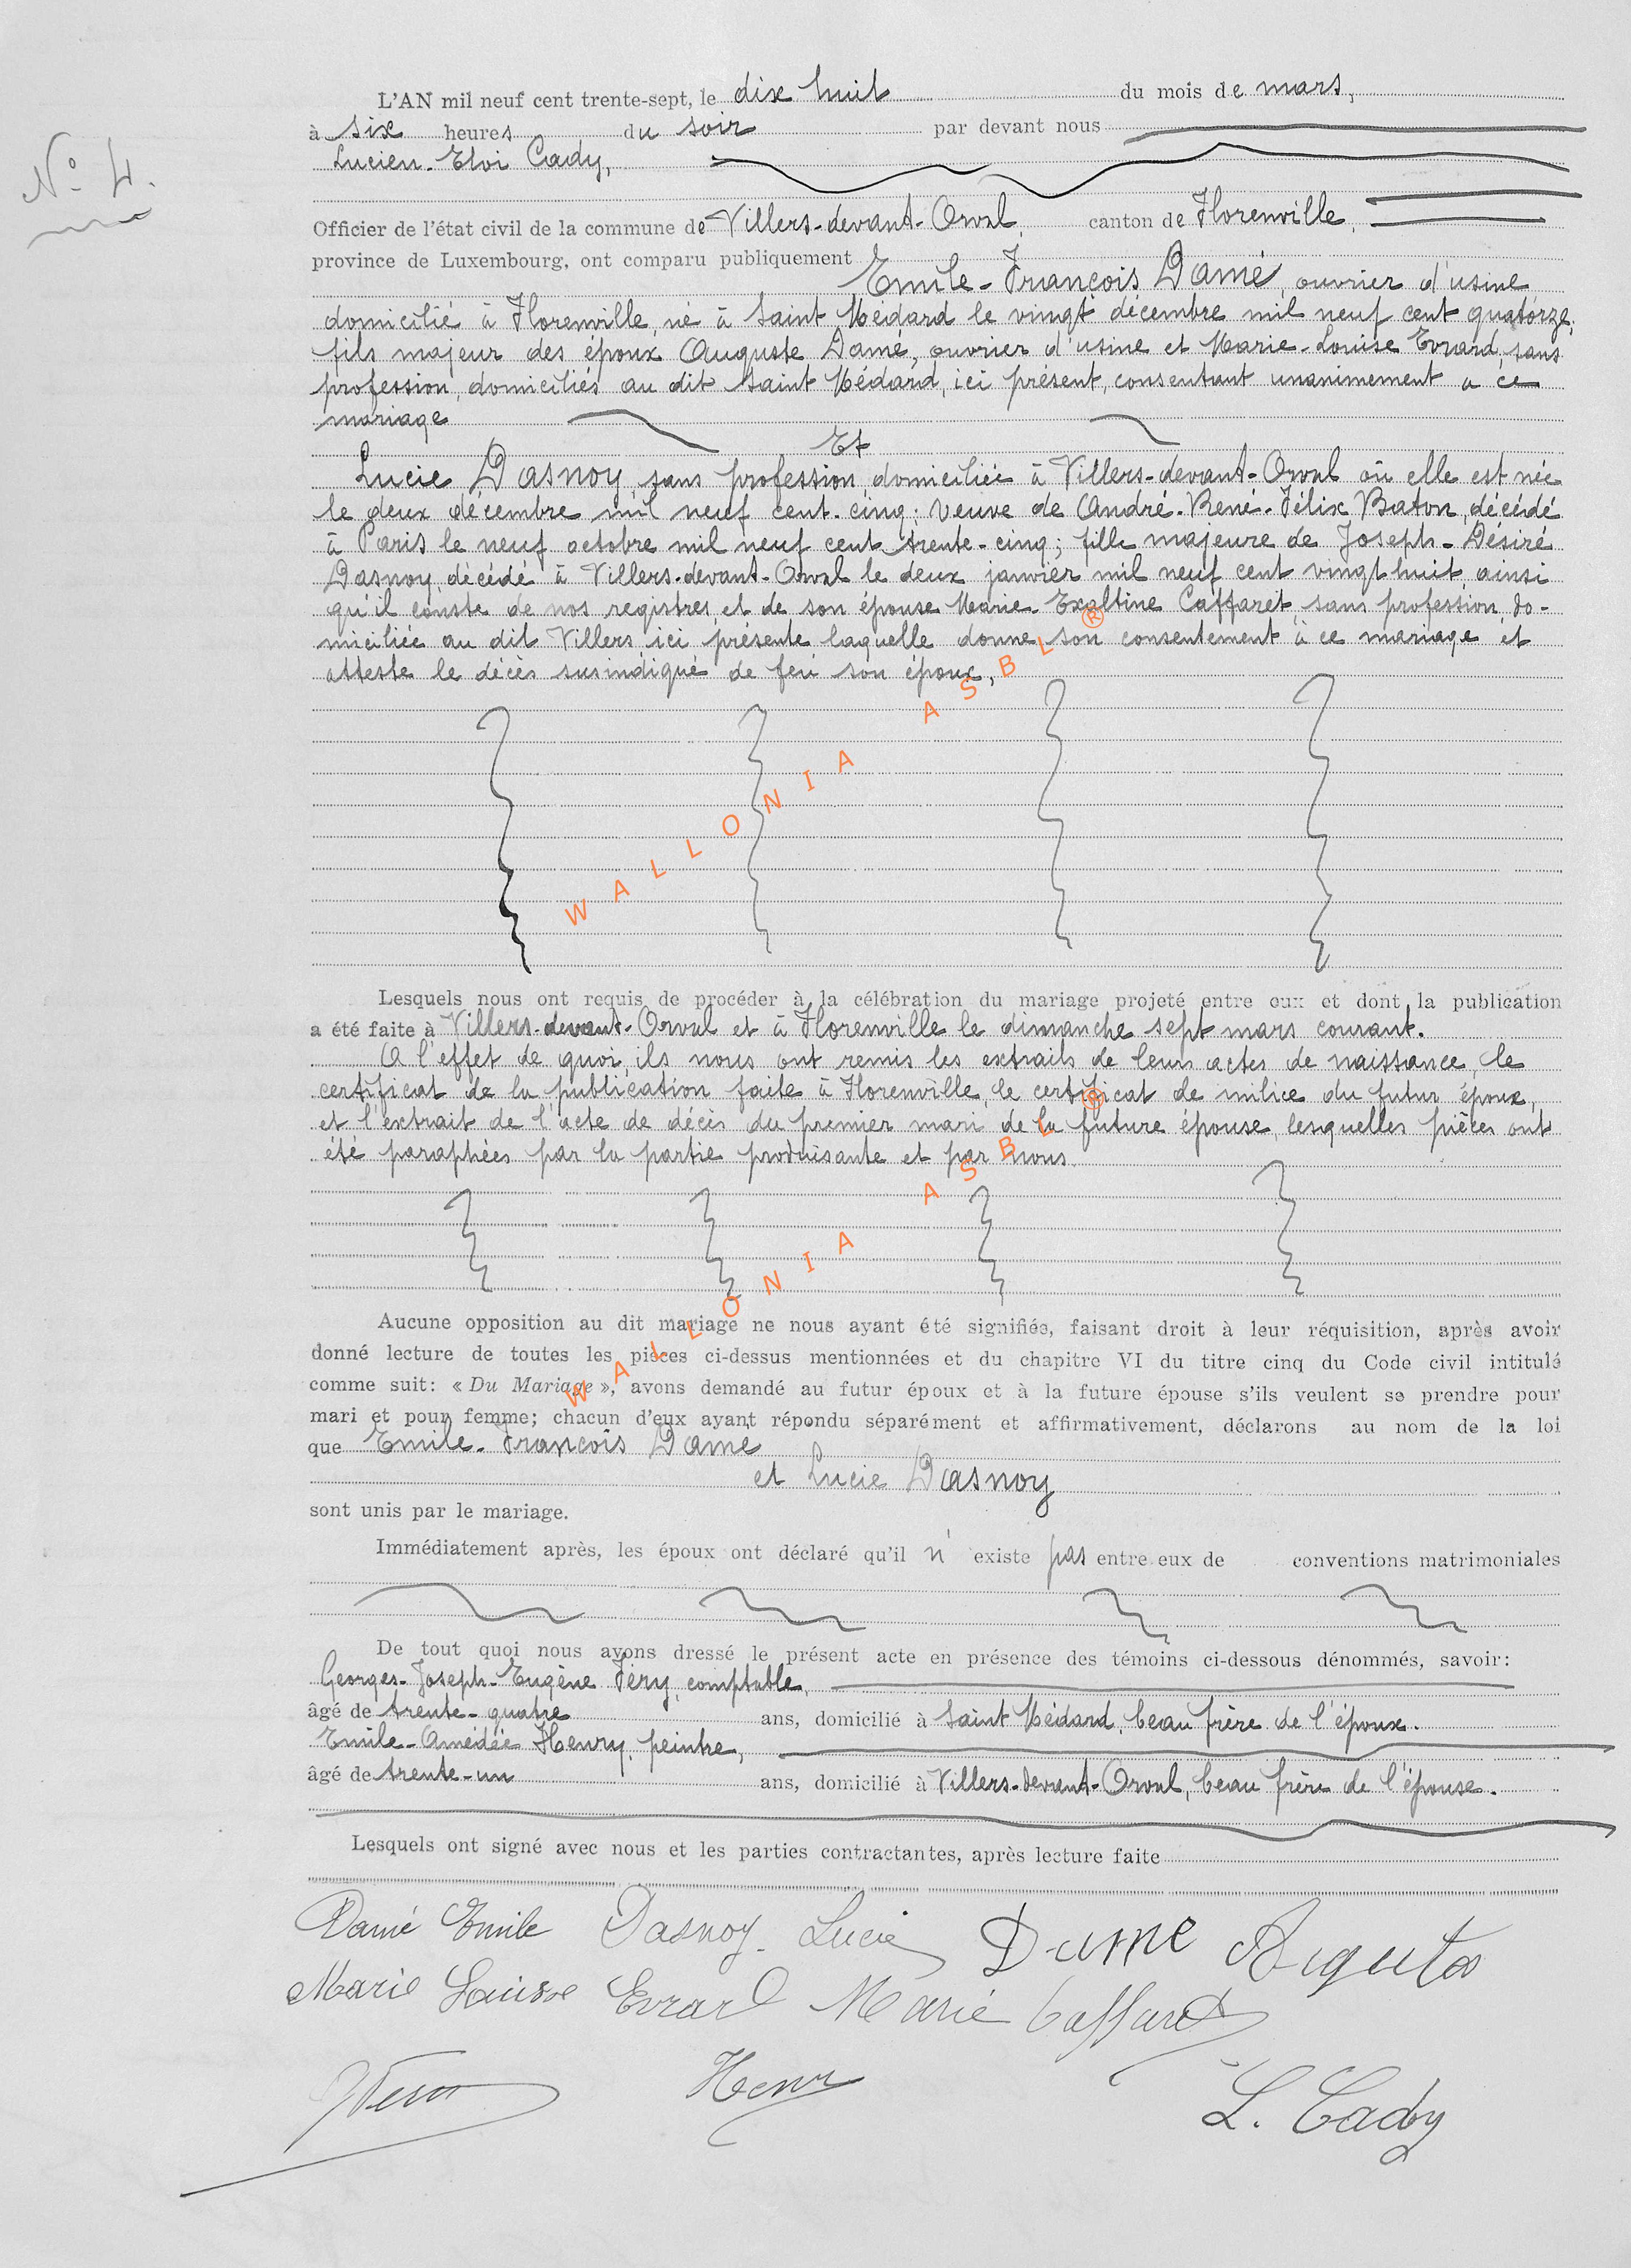 N° 4.
L'AN mil neuf cent trente-sept, le dix huit du mois de mars,
à six heures du soir par devant nous
Lucien-Eloi Cady,
Officier de l'état civil de la commune de Villers-devant-Orval, canton de Florenville,
province de Luxembourg, ont comparu publiquement
Emile-François Damé, ouvrier d'usine
domicilié à Florenville, né à Saint Médard le vingt décembre mil neuf cent quatorze,
fils majeur des époux Auguste Damé, ouvrier d'usine et Marie-Louise Evrard, sans
profession, domiciliés au dit Saint Médard, ici présent, consentant unanimement a ce
mariage
Et
Lucie Dasnoy, sans profession, domiciliée à Villers-devant-Orval où elle est née
le deux décembre mil neuf cent-cinq; veuve de André-René-Félix Baton, décédé
à Paris le neuf octobre mil neuf cent trente-cinq; fille majeure de Joseph-Désiré
Dasnoy, décédé à Villers-devant-Orval le deux janvier mil neuf cent vingt huit, ainsi
qu'il conste de nos registres, et de son épouse Marie-Exaltine Caffaret, sans profession, do-
miciliée au dit Villers, ici présente, laquelle donne son consentement à ce mariage et
atteste le décès susindiqué de feu son époux,
WALLONIA ASBL ®
Lesquels nous ont requis de procéder à la célébration du mariage projeté entre eux et dont la publication
a été faite à Villers-devant-Orval et à Florenville le dimanche sept mars courant.
A l'effet de quoi, ils nous ont remis les extraits de leurs actes de naissance, le
certificat de la publication faite à Florenville, le certificat de milice du futur époux,
et l'extrait de l'acte de décès du premier mari de la future épouse, lesquelles pièces ont
été paraphées par la partie produisante et par nous.
WALLONIA ASBL ®
Aucune opposition au dit mariage ne nous ayant été signifiée, faisant droit à leur réquisition, après avoir
donné lecture de toutes les pièces ci-dessus mentionnées et du chapitre VI du titre cinq du Code civil intitulé
comme suit: « Du Mariage », avons demandé au futur époux et à la future épouse s'ils veulent se prendre pour
mari et pour femme; chacun d'eux ayant répondu séparément et affirmativement, déclarons au nom de la loi
que Emile-François Damé
et Lucie Dasnoy
sont unis par le mariage.
Immédiatement après, les époux ont déclaré qu'il n'existe pas entre eux de conventions matrimoniales
De tout quoi nous avons dressé le présent acte en présence des témoins ci-dessous dénommés, savoir:
Georges-Joseph-Eugène Féry, comptable,
âgé de trente-quatre ans, domicilié à Saint Médard, beau frère de l'époux.
Emile-Amédée Henry, peintre,
âgé de trente-un ans, domicilié à Villers-devant-Orval, beau frère de l'épouse.
Lesquels ont signé avec nous et les parties contractantes, après lecture faite
Damé Emile Dasnoy Lucie Dame
Marie Louise Evrard Marie Caffaret
Henry
L. Cady